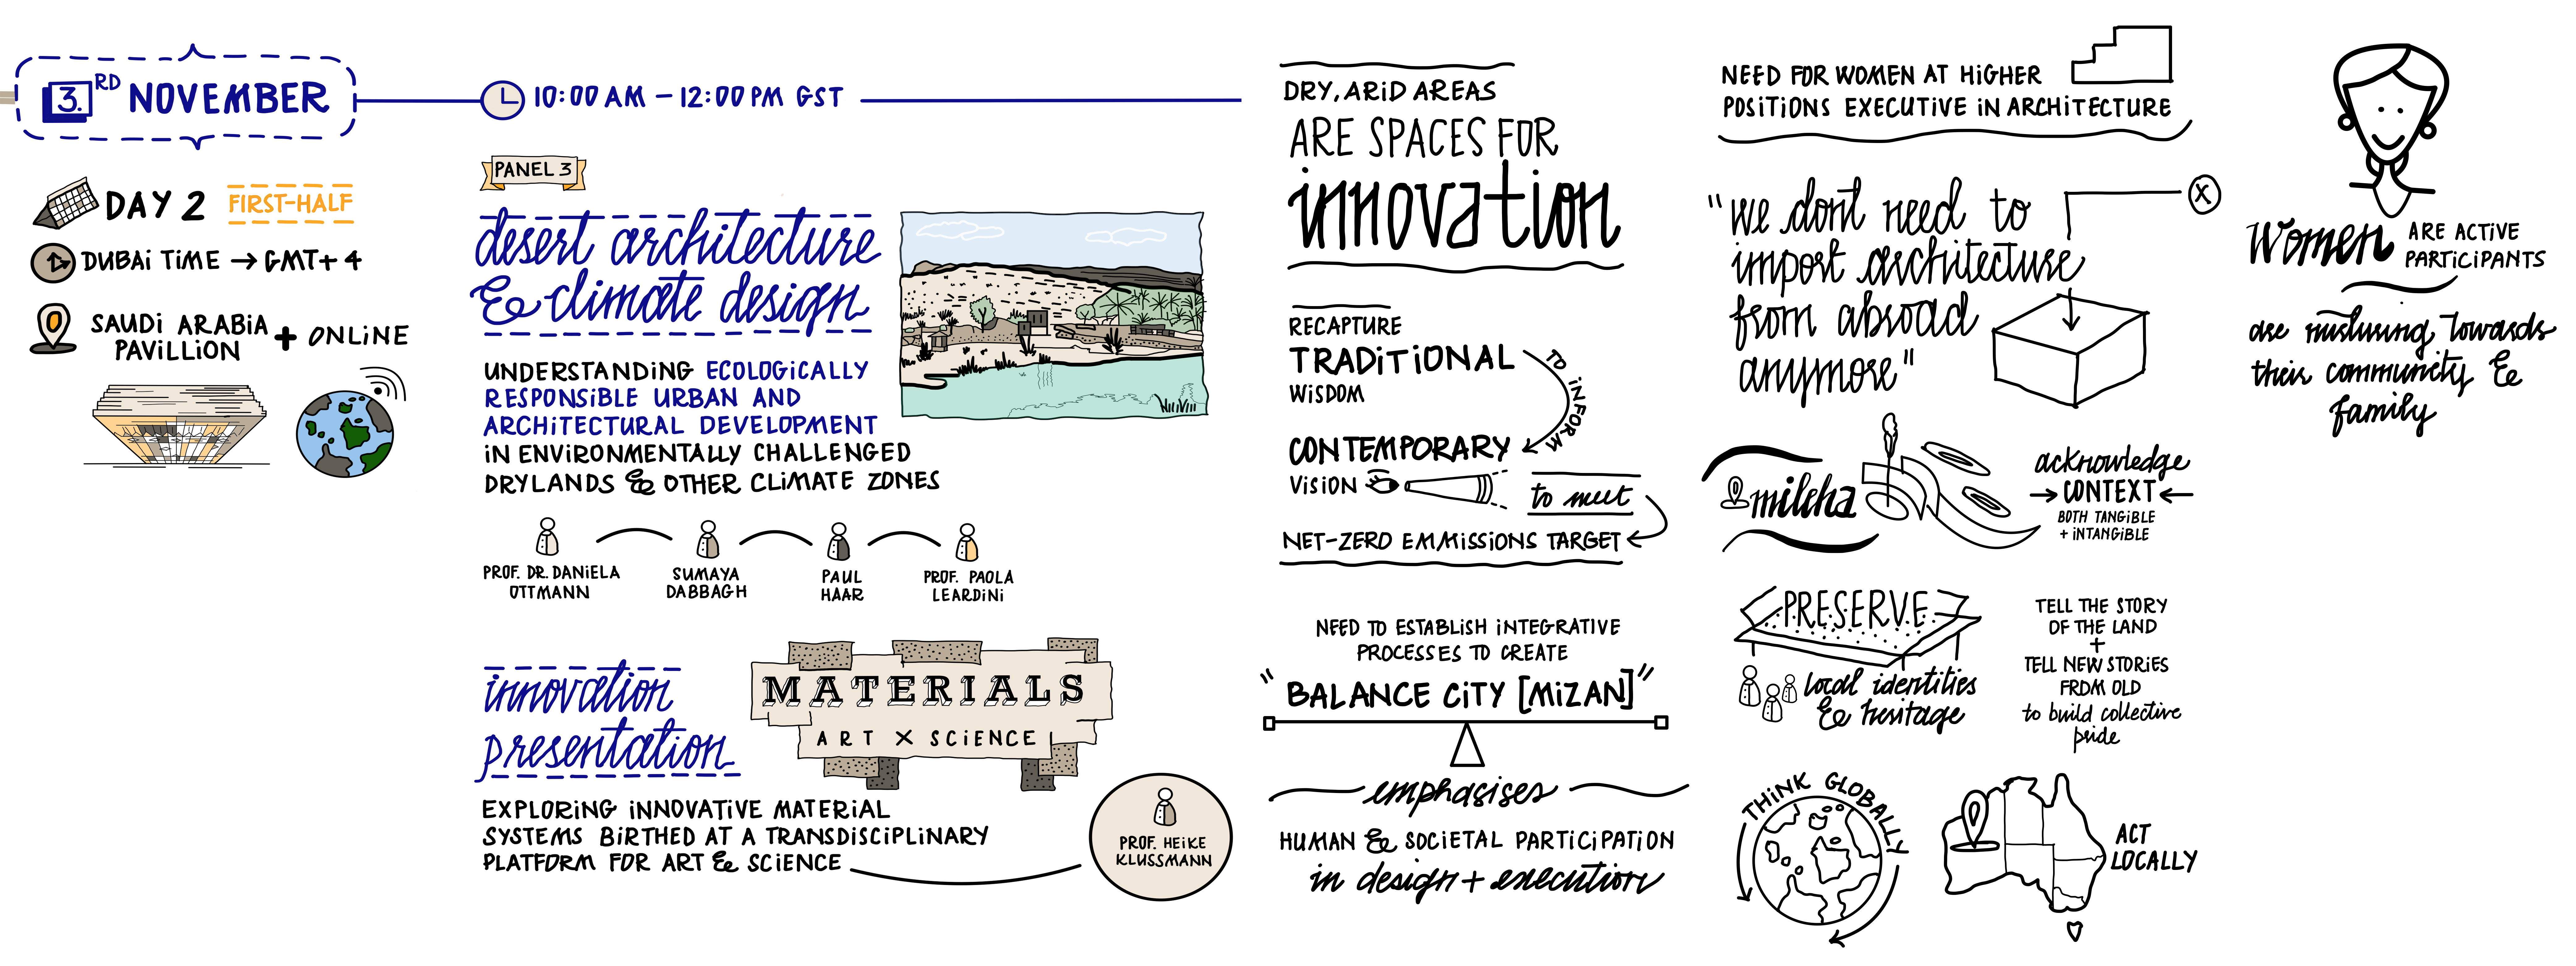 3.RD NOVEMBER
DAY 2 FIRST-HALF
DUBAI TIME → GMT+4
SAUDI ARABIA
PAVILLION + ONLINE
10:00 AM – 12:00 PM GST
PANEL 3
desert architecture
& climate design
UNDERSTANDING ECOLOGICALLY
RESPONSIBLE URBAN AND
ARCHITECTURAL DEVELOPMENT
IN ENVIRONMENTALLY CHALLENGED
DRYLANDS & OTHER CLIMATE ZONES
PROF. DR. DANIELA
OTTMANN
SUMAYA
DABBAGH
PAUL
HAAR
PROF. PAOLA
LEARDINI
innovation
presentation
MATERIALS
ART X SCIENCE
EXPLORING INNOVATIVE MATERIAL
SYSTEMS BIRTHED AT A TRANSDISCIPLINARY
PLATFORM FOR ART & SCIENCE
PROF. HEIKE
KLUSSMANN
DRY, ARID AREAS
ARE SPACES FOR
innovation
RECAPTURE
TRADITIONAL
WISDOM
TO INFORM
CONTEMPORARY
VISION
to meet
NET-ZERO EMMISSIONS TARGET
NEED TO ESTABLISH INTEGRATIVE
PROCESSES TO CREATE
"BALANCE CITY [MIZAN]"
emphasises
HUMAN & SOCIETAL PARTICIPATION
in design + execution
NEED FOR WOMEN AT HIGHER
POSITIONS EXECUTIVE IN ARCHITECTURE
"we dont need to
import architecture
from abroad
anymore"
X
mileha
acknowledge
→ CONTEXT ←
BOTH TANGIBLE
+ INTANGIBLE
PRESERVE
local identities
& heritage
TELL THE STORY
OF THE LAND
+
TELL NEW STORIES
FROM OLD
to build collective
pride
THINK GLOBALLY
ACT
LOCALLY
Women ARE ACTIVE
PARTICIPANTS
are nurturing towards
their community &
family